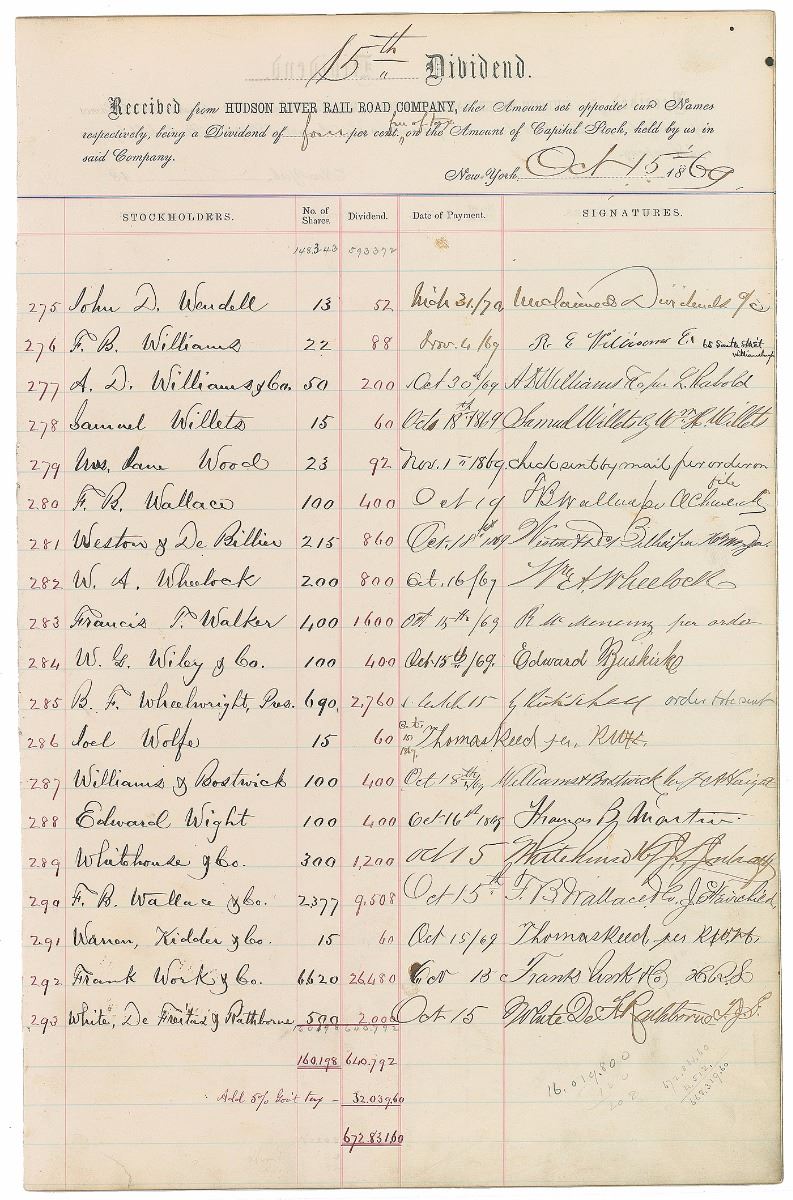 15th Dividend.
Received from HUDSON RIVER RAIL ROAD COMPANY, the Amount set opposite our Names
free of tax
respectively, being a Dividend of four per cent. on the Amount of Capital Stock, held by us in
said Company.
New-York, Oct 15th 1869
STOCKHOLDERS. No. of Shares. Dividend. Date of Payment. SIGNATURES.
148343 593372
275 John D. Wendell 13 52 Mch 31./70 Unclaimed Dividends a/c
276 F. B. Williams 22 88 Nov. 4/69 R E Williams Ex 65 South Street Williamsburgh
277 A. D. Williams & Co. 50 200 Oct 30th/69 A D Williams & Co per
278 Samuel Willets 15 60 Octo 18th 1869 Samuel Willets by Wm H. Willets
279 Mrs. Jane Wood 23 92 Nov. 1st 1869. check sent by mail per order on file
280 F. B. Wallace 100 400 Oct 19 F B Wallace per
281 Weston & De Billier 215 860 Oct. 18th 1869 Weston & De Billier per
282 W. A. Wheelock 200 800 Oct. 16/69 Wm A. Wheelock
283 Francis T. Walker 400 1600 Oct 15th/69 per order
284 W. G. Wiley & Co. 100 400 Oct. 15th/69. Edward Buskirk
285 B. F. Wheelwright, Pres. 690 2,760 15 by order to be sent
286 Joel Wolfe 15 60 Oct. 15/1869. Thomas Reed per,
287 Williams & Bostwick 100 400 Oct 18th/69 Williams & Bostwick by J A Haight
288 Edward Wight 100 400 Oct 16th 1869 Thomas B. Martin
289 Whitehouse & Co. 300 1,200 Oct 15 Whitehouse & Co
290 F. B. Wallace & Co. 2377 9,508 Oct 15th F. B. Wallace & Co. J. Fairchild
291 Warren, Kidder & Co. 15 60 Oct 15/69 Thomas Reed per
292 Frank Work & Co. 6620 26,480 15 Frank Work & Co
293 White, De Freitas & Rathborne 500 2000 Oct 15 White De F & Rathborne
160,198 640,792
160,198 640,792
Add 5% Gov't tax - 32.039,60
672.831,60
16,019,800
672,831,60